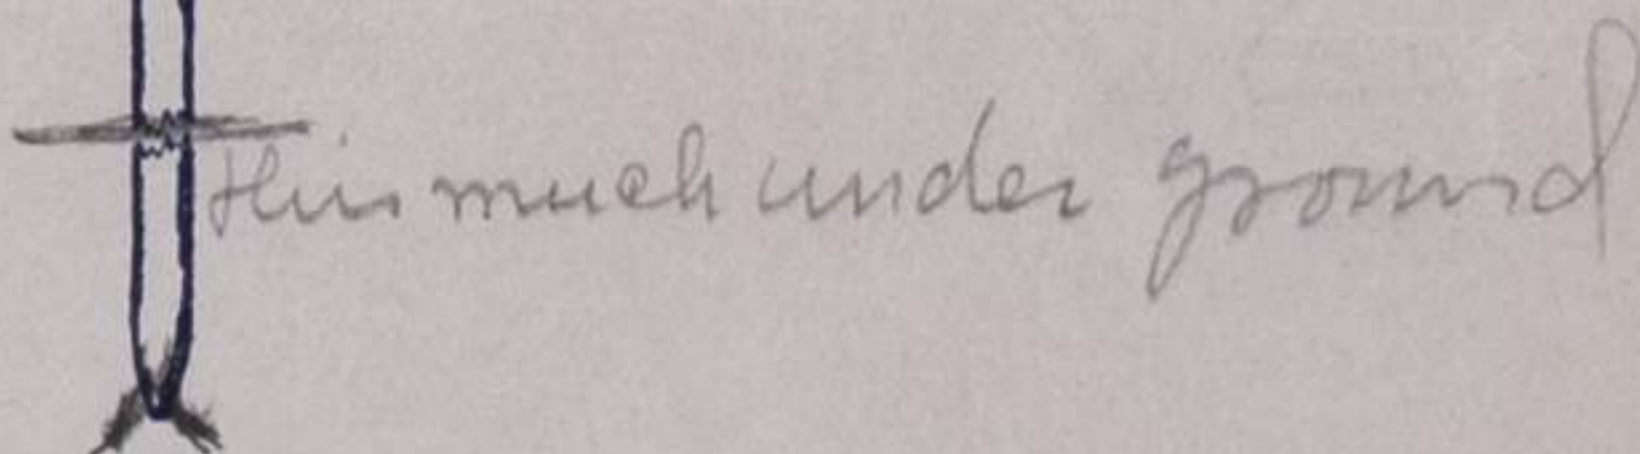 this much under ground